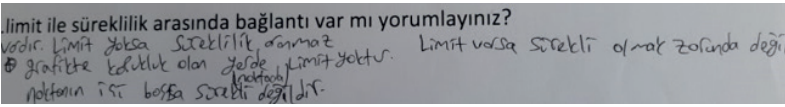 .limit ile süreklilik arasında bağlantı var mı yorumlayınız?
vardır. Limit yoksa süreklilik aranmaz Limit varsa sürekli olmak zorunda deği
grafikte kopukluk olan yerde limit yoktur.
(noktada)
noktanın içi boşsa sürekli değildir.